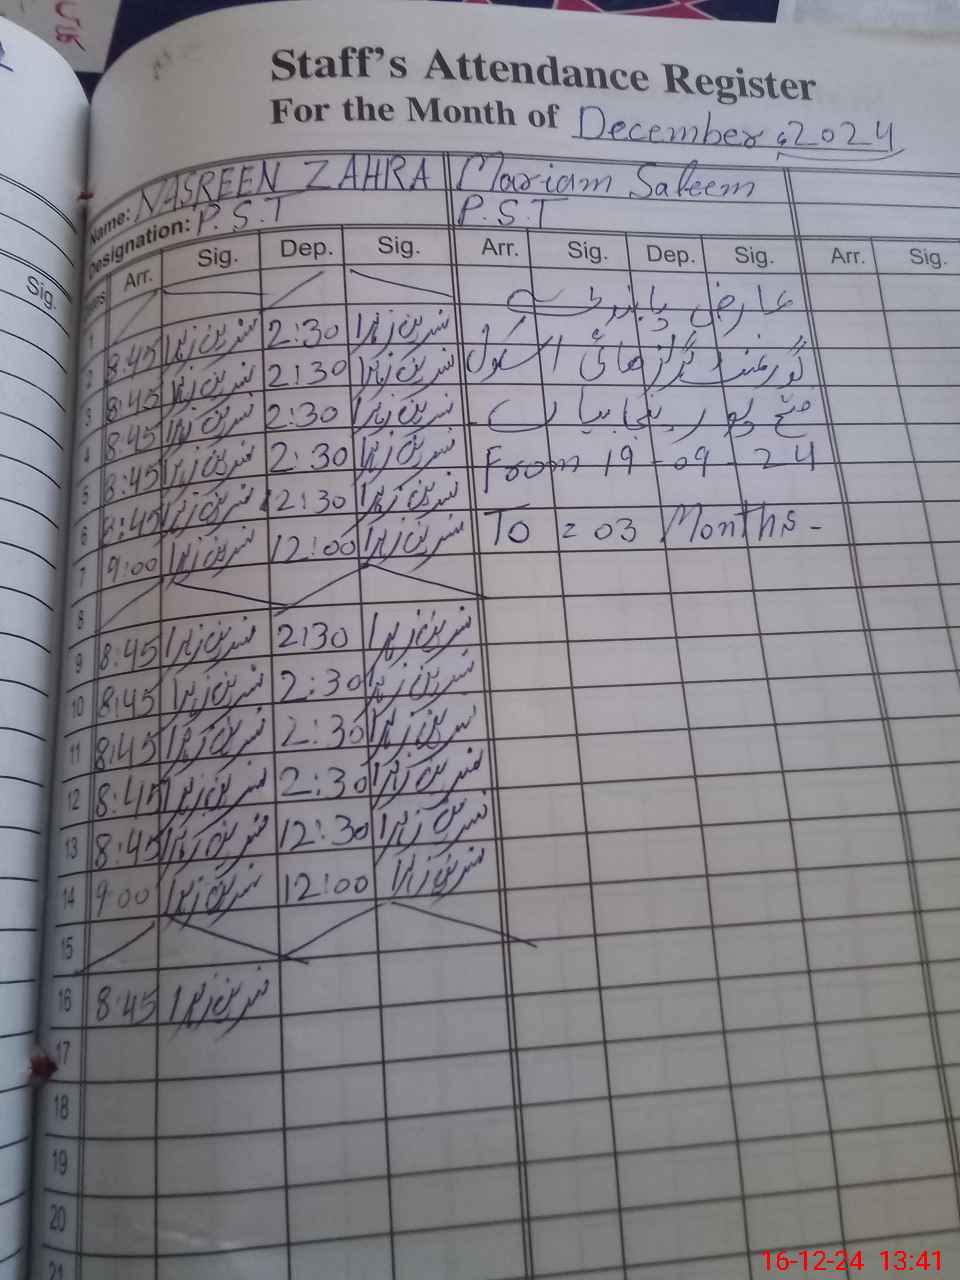 Staff's Attendance Register
For the Month of December, 2024
Name: NASREEN ZAHRA Mariam Saleem
Designation: P.S.T P.S.T
Arr. Sig. Dep. Sig. Arr. Sig. Dep. Sig. Arr. Sig.
Sig.
عارضی
1
2 8:45 نسرین زہرا 2:30 نسرین زہرا
گورنمنٹ گرلز ہائی اسکول
3 8:45 نسرین زہرا 2:30 نسرین زہرا
فتح پور
4 8:45 نسرین زہرا 2:30 نسرین زہرا
From 19-09-24
5 8:45 نسرین زہرا 2:30 نسرین زہرا
6 8:45 نسرین زہرا 12:30 نسرین زہرا
To = 03 Months-
7 9:00 نسرین زہرا 12:00 نسرین زہرا
8
9 8:45 نسرین زہرا 2:30 نسرین زہرا
10 8:45 نسرین زہرا 2:30 نسرین زہرا
11 8:45 نسرین زہرا 2:30 نسرین زہرا
12 8:45 نسرین زہرا 2:30 نسرین زہرا
13 8:45 نسرین زہرا 12:30 نسرین زہرا
14 9:00 نسرین زہرا 12:00 نسرین زہرا
15
16 8:45 نسرین زہرا
17
18
19
20
21
16-12-24 13:41